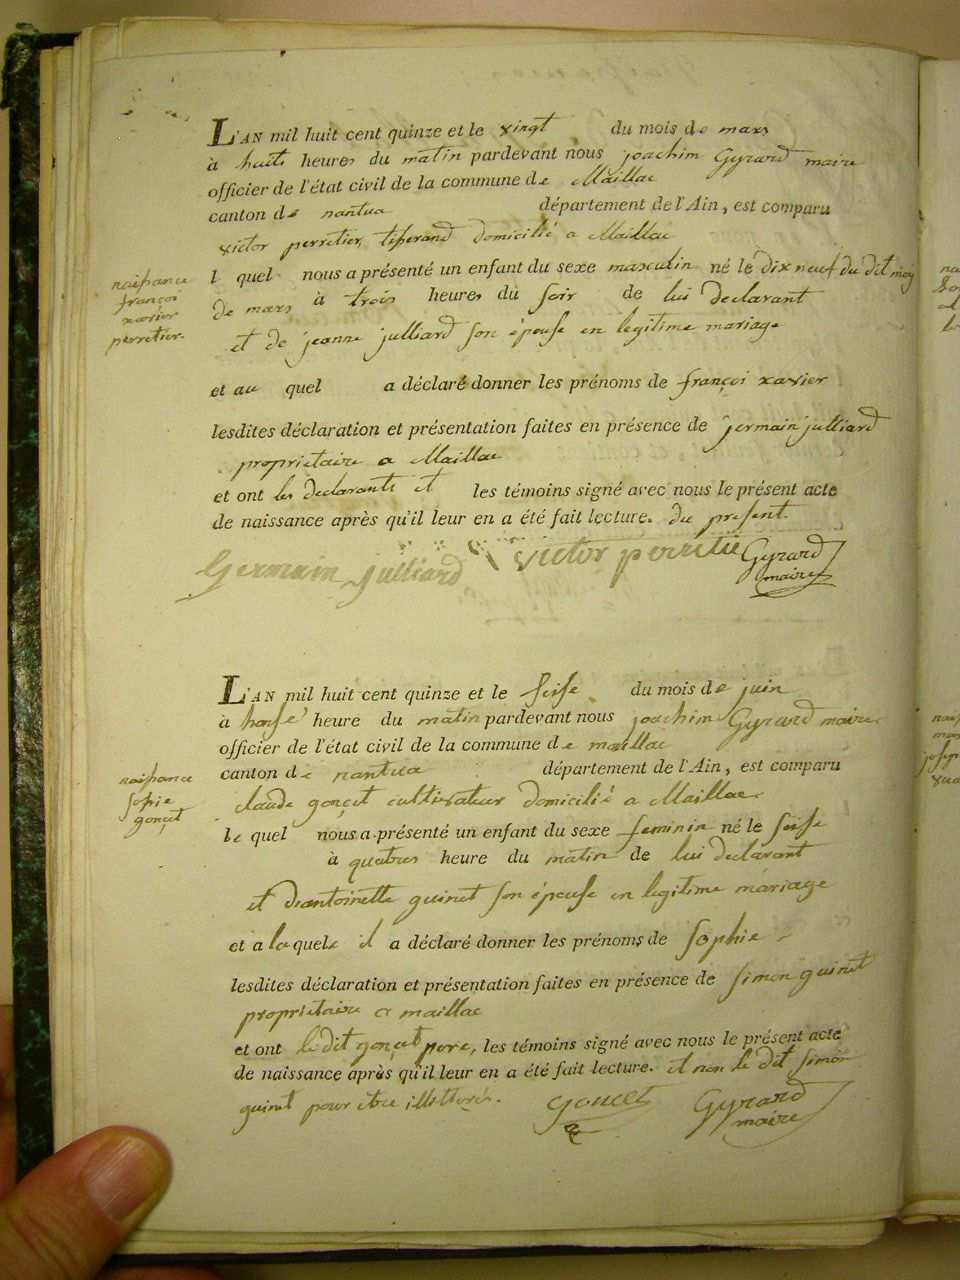 L'AN mil huit cent quinze et le vingt du mois de mars
à huit heures du matin pardevant nous joachim Gyrard maire
officier de l'état civil de la commune de Maillac
canton de nantua département de l'Ain, est comparu
victor perretier, tisserand domicilié a Maillac
l quel nous a présenté un enfant du sexe masculin né le dix neuf du dit moy
de mars à trois heures du soir de lui declarant
et de jeanne julliard son épouse en legitime mariage
et au quel a déclaré donner les prénoms de françoi xavier
lesdites déclaration et présentation faites en présence de germain julliard
propriétaire a Maillac
et ont les declarants et les témoins signé avec nous le présent acte
de naissance après qu'il leur en a été fait lecture. du present.
Germain julliard victor perretie Gyrard
maire
naissance
françoi
xavier
perretier.
L'AN mil huit cent quinze et le seise du mois de juin
à honse heure du matin pardevant nous joachim Gyrard maire
officier de l'état civil de la commune de maillac
canton de nantua département de l'Ain, est comparu
claude gonçet cultivateur domicilié a Maillac
le quel nous a présenté un enfant du sexe feminin né le seise
à quatres heure du matin de lui declarant
et d'antoinette guinet son épouse en legitime mariage
et a la quele il a déclaré donner les prénoms de Sophie
lesdites déclaration et présentation faites en présence de simon guinet
propriétaire a maillac
et ont le dit gonçet pere, les témoins signé avec nous le présent acte
de naissance après qu'il leur en a été fait lecture. et non le dit simon
guinet pour etre illettorés.
goncet Gyrard
maire
naissance
sophie
gonçet